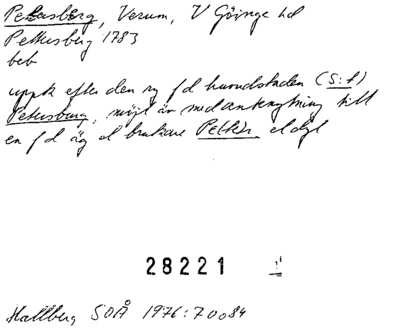 Petersberg, Verum, V Göinge hd
Pettersberg 1783
beb
uppk efter den ry f d huvudstaden (S:t)
Petersburg, möjl även med anknytning till
en f d äg el brukare Petter el dyl
28221
Hallberg SOÅ 1976:70o84